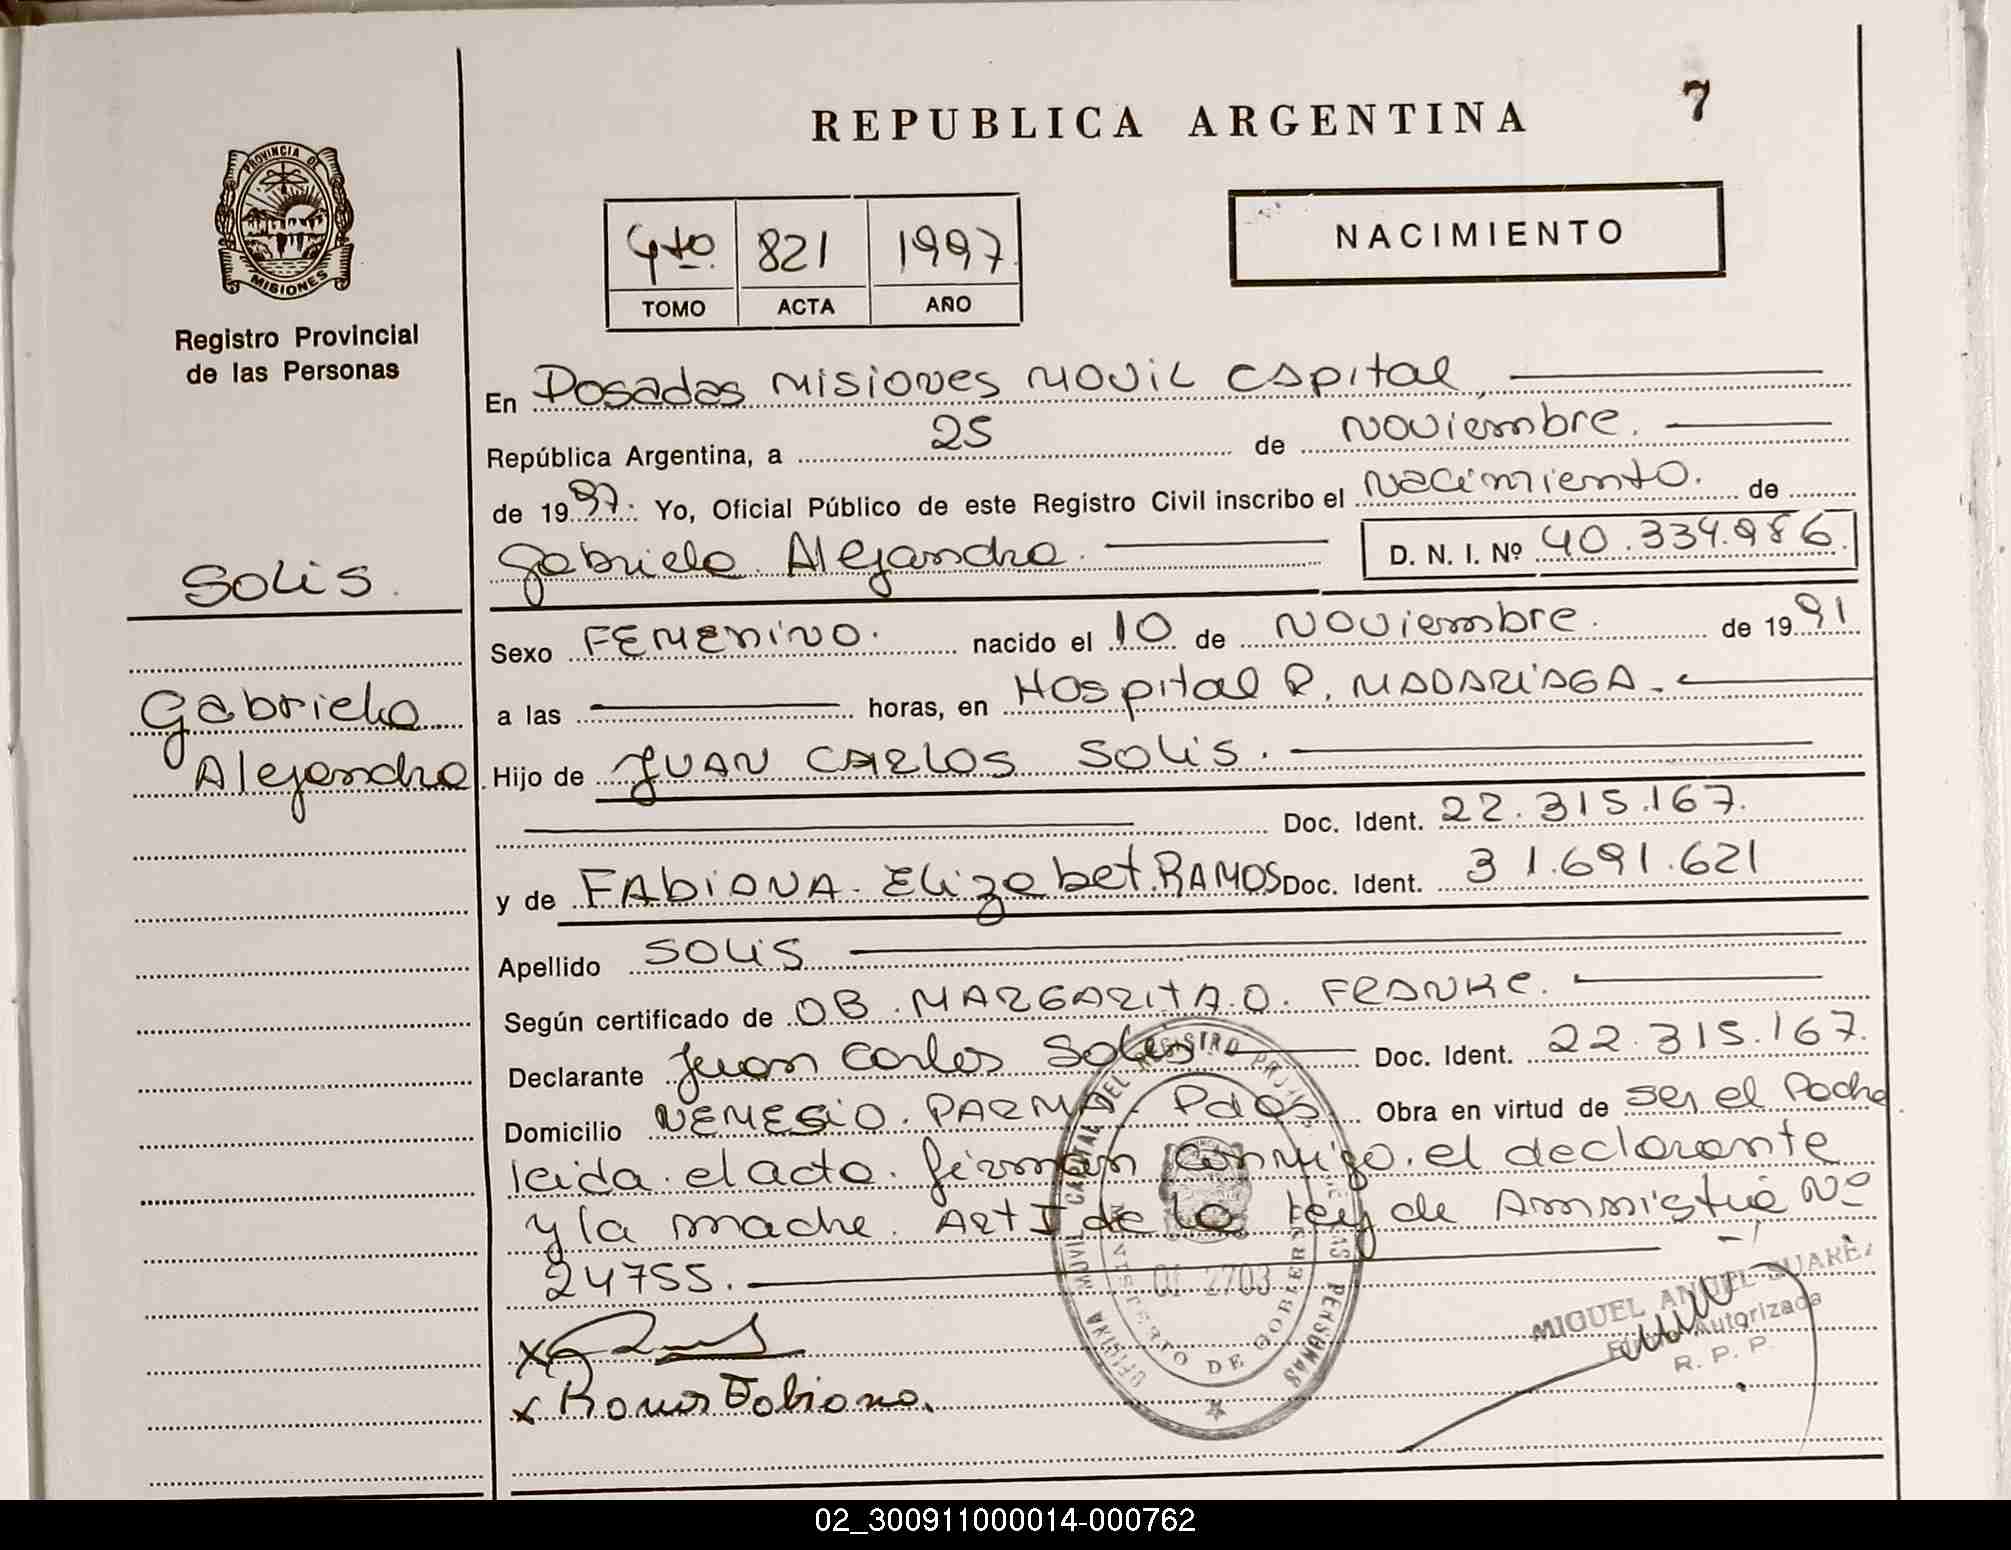 REPUBLICA ARGENTINA
7
PROVINCIA DE
MISIONES
Registro Provincial
de las Personas
4to. 821 1997
TOMO ACTA AÑO
NACIMIENTO
En Posadas Misiones Movil Capital,
República Argentina, a 25 de Noviembre.
de 1997: Yo, Oficial Público de este Registro Civil inscribo el Nacimiento. de
Gabriela Alejandra. D. N. I. Nº 40.334.986.
Solis.
Gabriela
Alejandra
Sexo FEMENINO. nacido el 10 de Noviembre. de 1991
a las horas, en Hospital R. MADARIAGA.
Hijo de JUAN CARLOS SOLIS.
Doc. Ident. 22.315.167.
y de FABIANA. Elizabet. RAMOS Doc. Ident. 31.691.621
Apellido SOLIS
Según certificado de OB. MARGARITA. O. FRANKE.
Declarante Juan Carlos Solis Doc. Ident. 22.315.167.
Domicilio NEMESIO. PARMA. Pdas. Obra en virtud de ser el Padre
leida. el acta. firman conmigo. el declarante
y la madre. Art I de la Ley de Ammistia Nº
24755.
x
x Ramos Fabiana.
OFICINA MOVIL CAPITAL DEL REGISTRO PROVINCIAL DE LAS PERSONAS
MINISTERIO DE GOBIERNO
MIGUEL ANGEL SUAREZ
Autorizada
R. P. P.
02_300911000014-000762